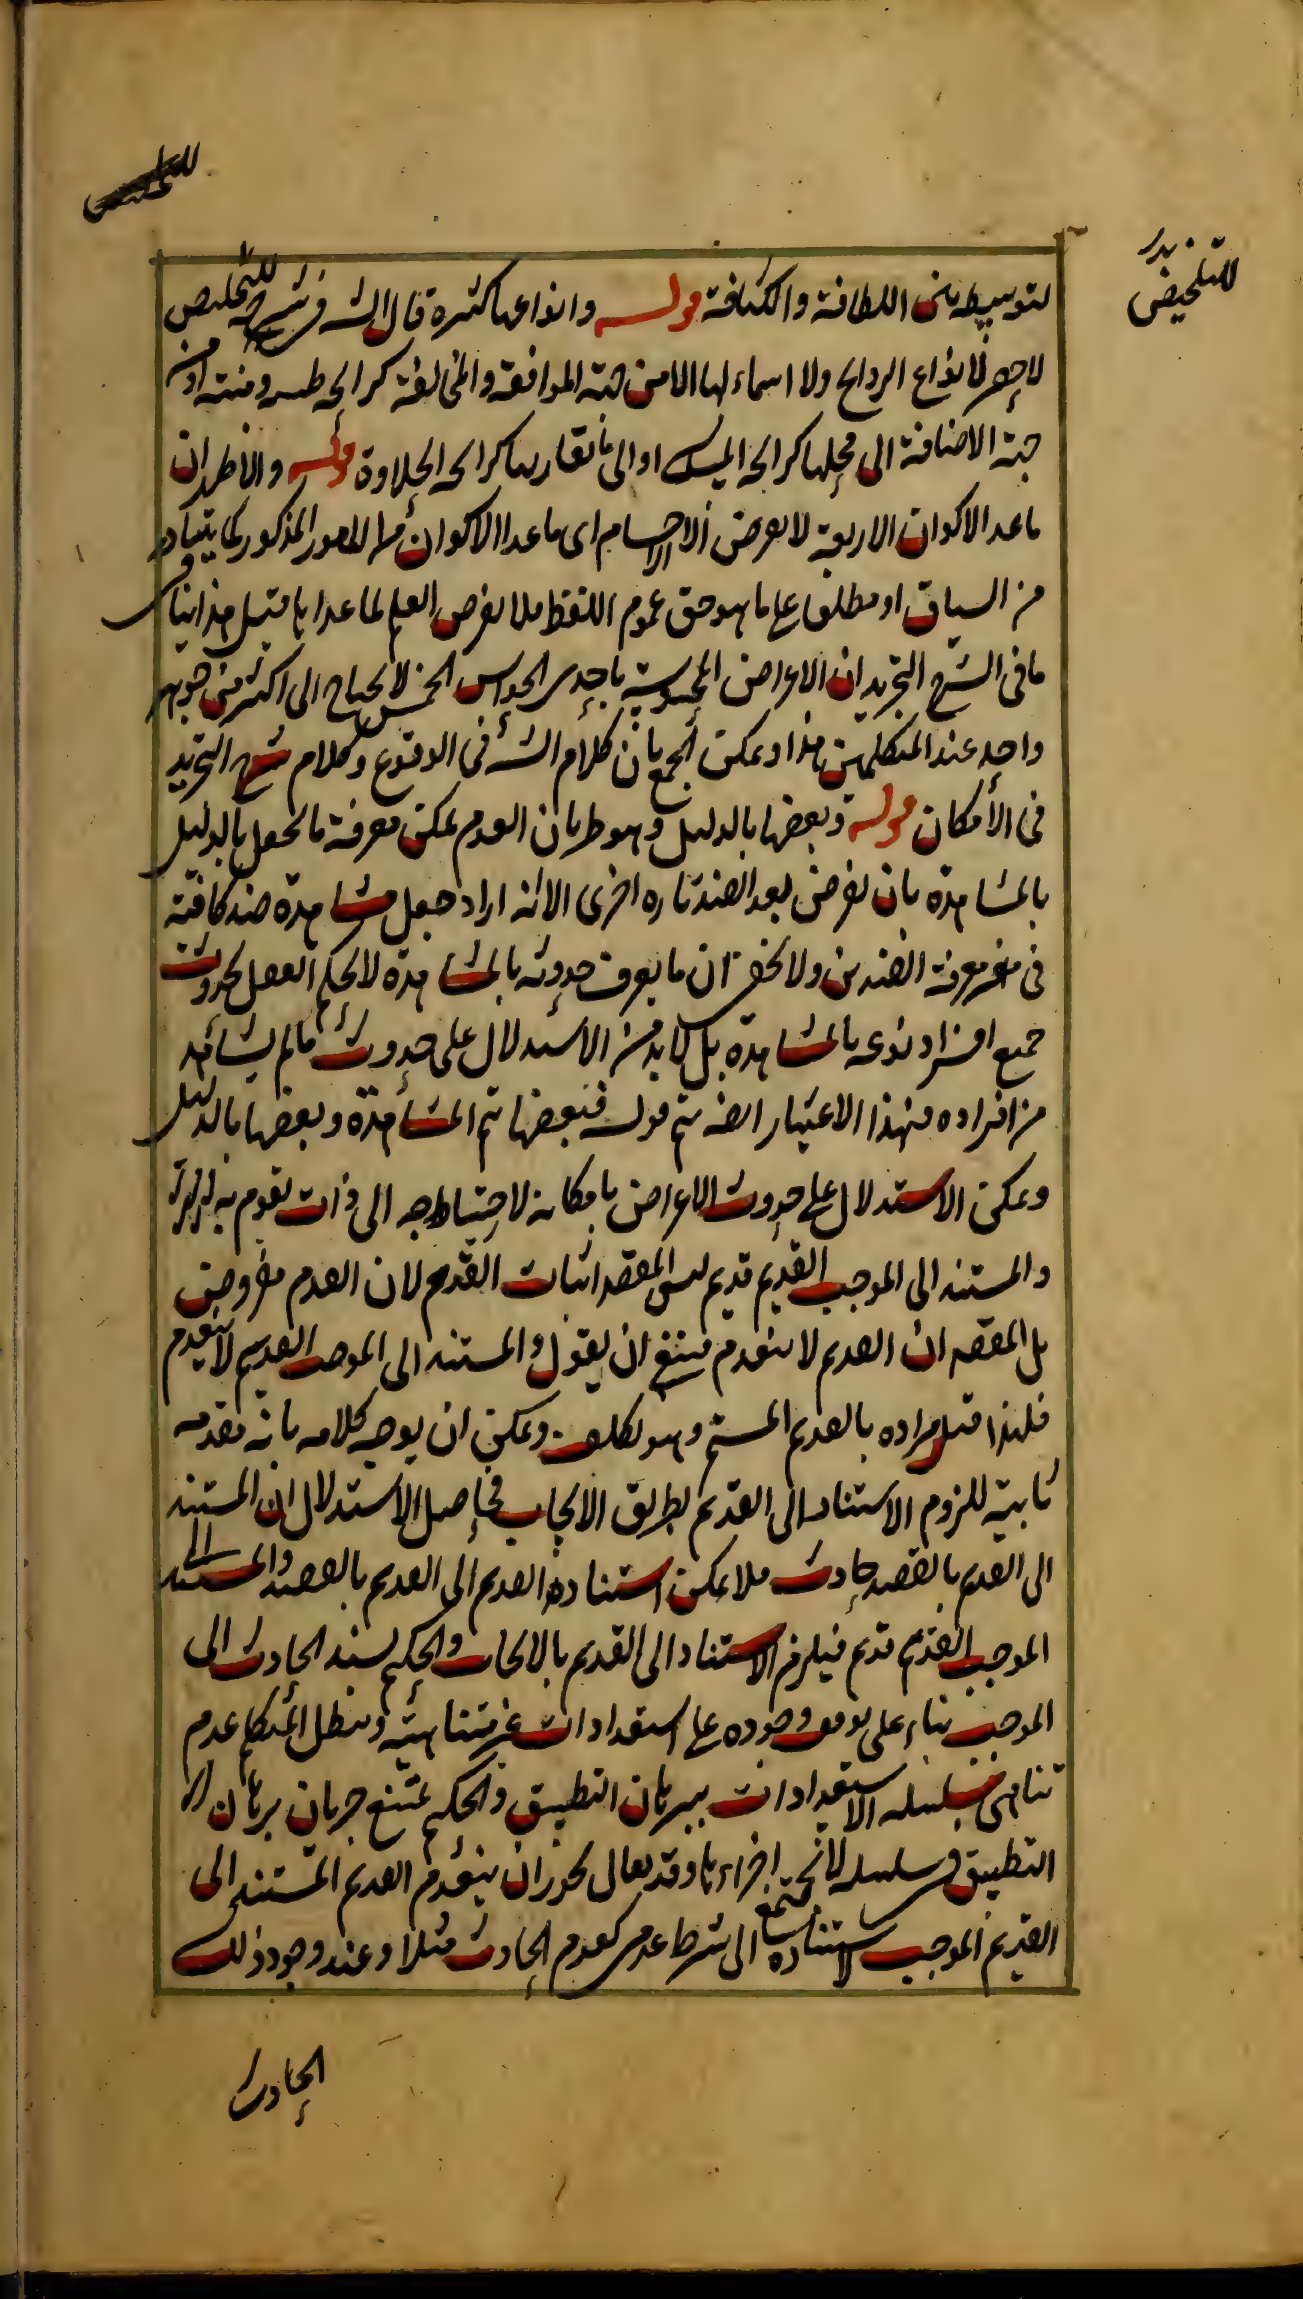 للتلخيص
لتوسيطه بين اللطافة والكثافة قوله وانواعها كثيرة قال الشه في شرحه للتخليص
لا حصر لانواع الروايح ولا اسماء لها الا من جهة الموافقة والمخالفة كرايحة طيبه ومنتنه او من
جهة الاضافة الى محلها كرايحة المسك او الى ما يقاربها كرايحة الحلاوة قوله والاظهر ان
ما عدا الاكوان الاربعة لا يعرض الا الاجسام اى ما عدا الاكوان من الامور المذكور كما يتبادر
من السياق او مطلقا على ما هو حق عموم اللفظ فلا يفرض العلم لما عداها قيل هذا ينافى
ما فى الشرح التجريد ان الاعراض المحسوسة باحدى الحواس الخمس لا يحتاج الى اكثر من جوهر
واحد عند المتكلمين هذا ويمكن الجمع بان كلام الشه فى الوقوع وكلام شرح التجريد
فى الامكان قوله وبعضها بالدليل وهو طريان العدم يمكن معرفة ما يحصل بالدليل
بالمشاهدة بان يفرض بعد الضد تاره اخرى الا انه اراد جعل مشاهدة ضد كافية
فى معرفة الضدين ولا يخفى ان ما يعرف حدوثه بالمشاهدة لا يحكم العقل بحدوث
جميع افراد نوعه بالمشاهدة بل لا بد من الاستدلال على حدوث ما لم يشاهد
من افراده فبهذا الاعتبار ايضه يتم قوله فبعضها تم المشاهدة وبعضها بالدليل
ويمكن الاستدلال على حدوث الاعراض بامكانه لاحتياجه الى ذات يقوم به قوله
والمستند الى الموجب القديم قديم ليس المقصد اثبات القدم لان العدم مفروض
بل المقصد ان القديم لا ينعدم فينبغى ان يقول والمستند الى الموجب القديم لا ينعدم
فلهذا قيل مراده بالقديم المستمر وهو تكلف ويمكن ان يوجه كلامه بانه مقدمه
ثانية للزوم الاستناد الى القديم بطريق الايجاب فحاصل الاستدلال ان المستند
الى القديم بالقصد حادث فلا يمكن استناد القديم الى القديم بالقصد والمستند الى
الموجب القديم قديم فيلزم الاستناد الى القديم بالايجاب والحكيم يسند الحادث الى
الموجب بناء على توقف وجوده على استعدادات غير متناهية ويبطل المتكلم عدم
تناهى سلسلة الاستعدادات ببرهان التطبيق والحكيم يمنع جريان برهان
التطبيق فى سلسلة لا يجتمع اجزاءها وقد يقال يجوز ان ينعدم القديم المستند الى
القديم الموجب لاستناده الى شرط عدمى كعدم الحادث مثلا وعند وجود ذلك
الحادث